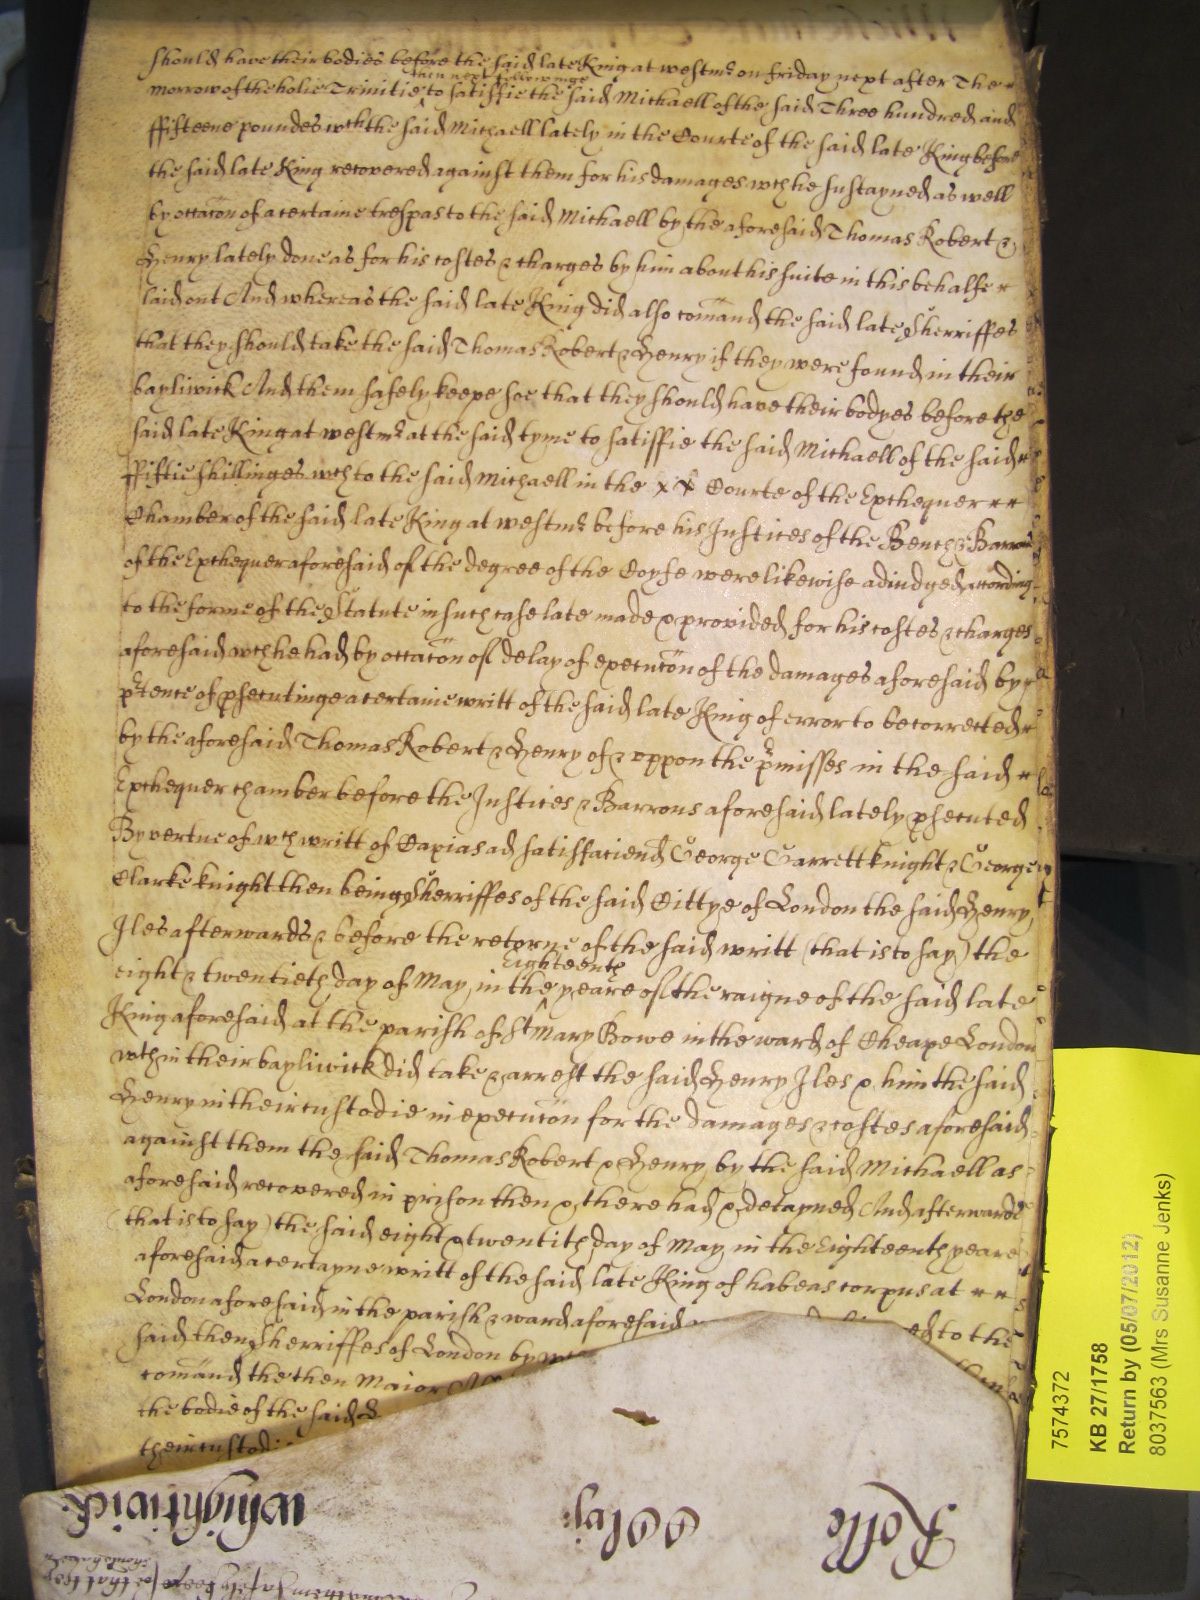 should have their bodies before the said late King at westmr on friday next after The
then next followinge
morrow of the holie Trinitie to satisfie the said Michaell of the said Three hundred and
ffifteene poundes wch the said Michaell lately in the Courte of the said late King before
the said late King recovered against them for his damages wch he sustayned as well
by occacōn of a certaine trespas to the said Michaell by the aforesaid Thomas Robert &
Henry lately done as for his costes & charges by him about his suite in this behalfe
laid out And whereas the said late King did also comānd the said late Sherriffes
that they should take the said Thomas Robert & Henry if they were found in their
bayliwick And them safely keepe soe that they should have their bodyes before the
said late King at westmr at the said tyme to satisfie the said Michaell of the said
ffiftie shillinges wch to the said Michaell in the x x Courte of the Exchequer
Chamber of the said late King at westmr before his Justices of the Bench & Barrons
of the Exchequer aforesaid of the degree of the Coyfe were likewise adiudged according
to the forme of the Statute in such case late made & provided for his costes & charges
aforesaid wch he had by occacōn of delay of execucōn of the damages aforesaid by
ptence of psecutinge a certaine writt of the said late King of error to be corrected
by the aforesaid Thomas Robert & Henry of & vppon the pmisses in the said
Exchequer chamber before the Justices & Barrons aforesaid lately psecuted
By vertue of wch writt of Capias ad satisfaciend George Garrett knight & George
Clarke knight then being Sherriffes of the said Cittye of London the said Henry
Iles afterwards & before the retorne of the said writt (that is to say) the
Eighteenth
eight & twentieth day of May in the yeare of the raigne of the said late
King aforesaid at the parish of St Mary Bowe in the ward of Cheape London
wthin their bayliwick did take & arrest the said Henry Iles & him the said
Henry in their custodie in execucōn for the damages & costes aforesaid
against them the said Thomas Robert & Henry by the said Michaell as
aforesaid recovered in prison then & there had & detayned And afterwards
(that is to say) the said eight & twentith day of May in the Eighteenth yeare
aforesaid a certayne writt of the said late King of habeas corpus at
London aforesaid in the parish & ward aforesaid ed to the
said then Sherriffes of London by
comānd the then Maior
the bodie of the said
their custodie
whightwick:
Rolle
that they
7574372
KB 27/1758
Return by (05/07/2012)
8037563 (Mrs Susanne Jenks)